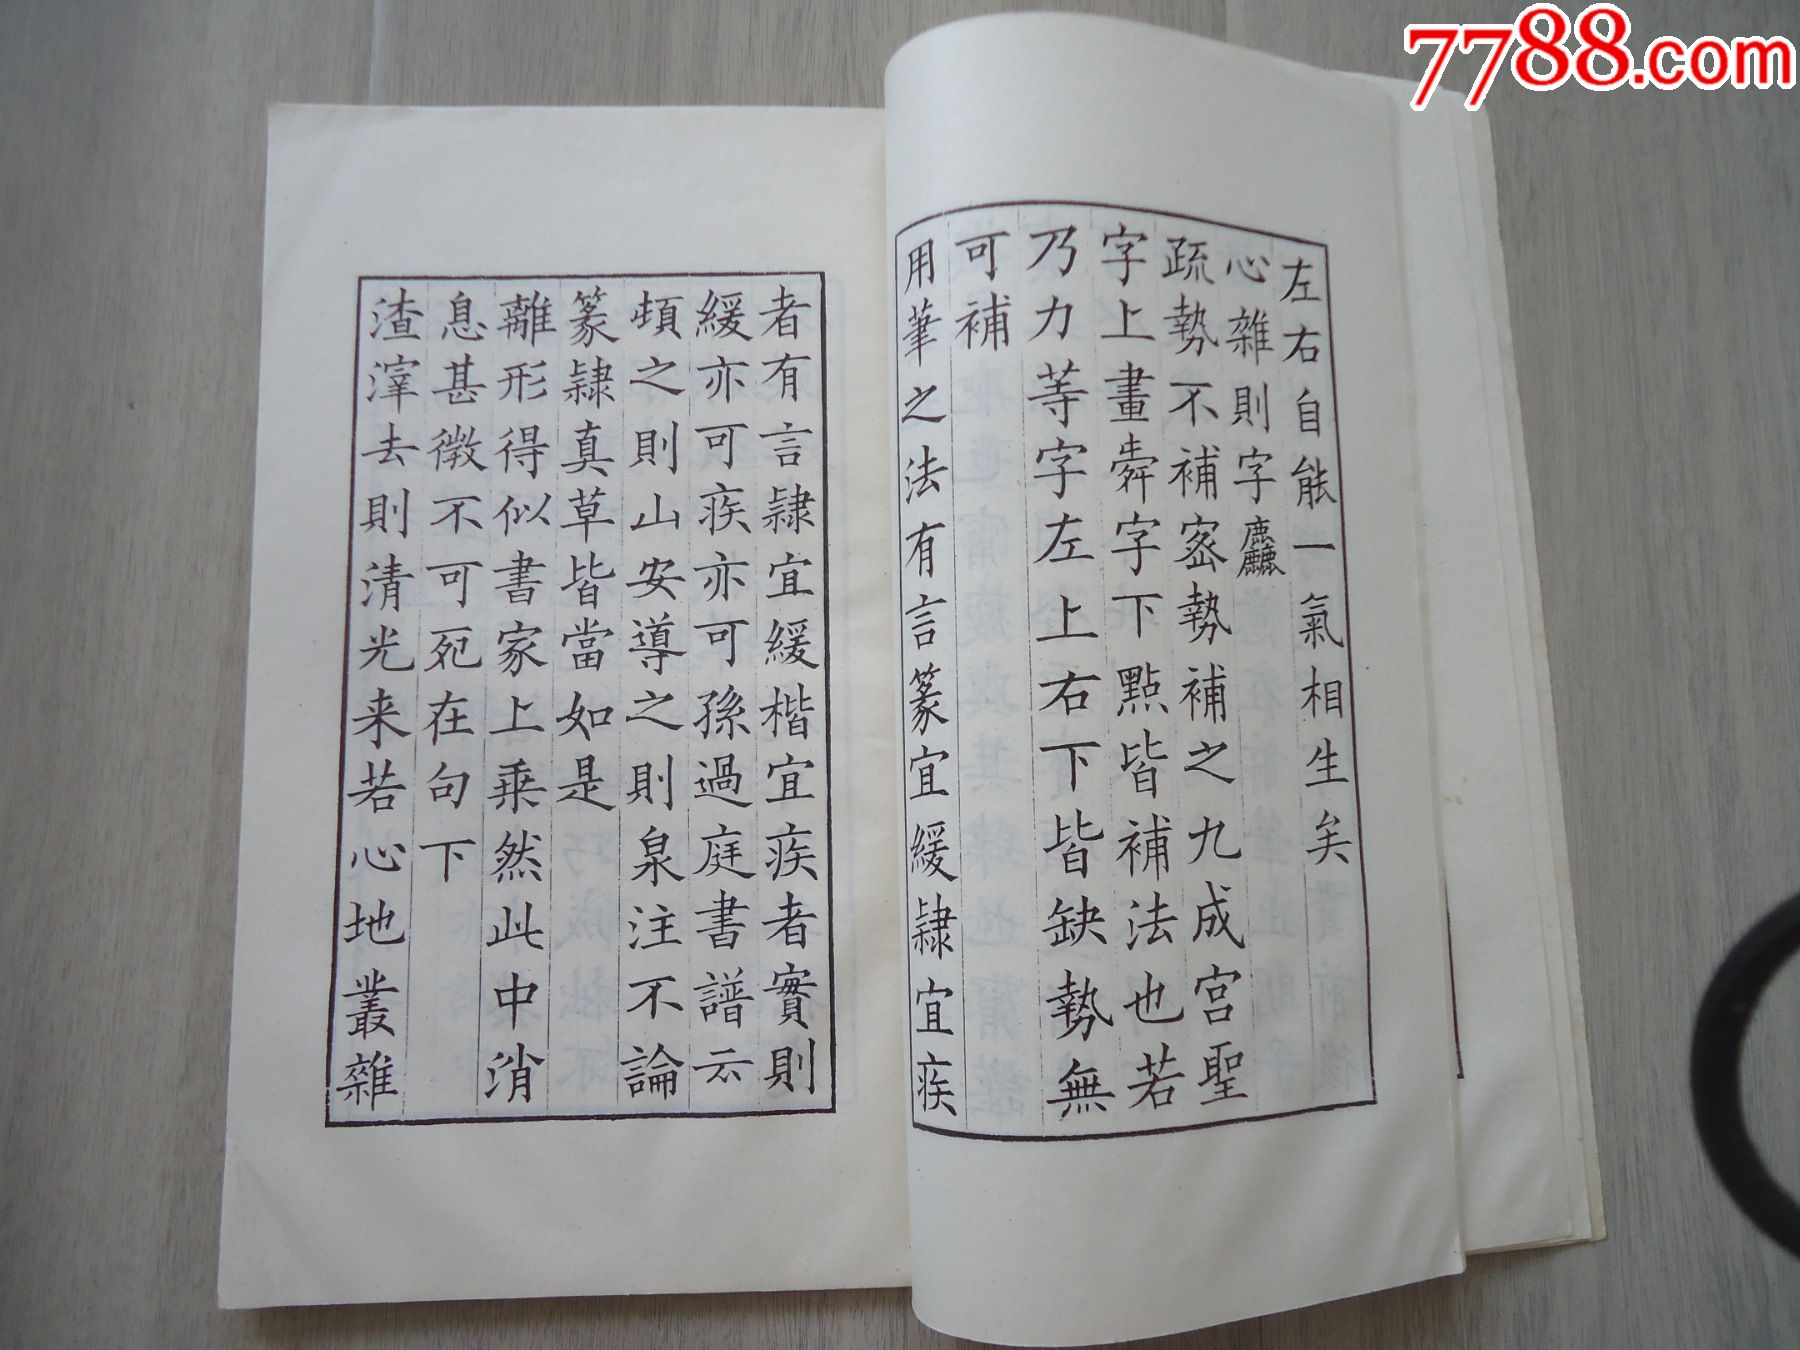 7788.com
左右自能一氣相生矣
心雜則字麤
疏勢不補密勢補之九成宮聖
字上畫舜字下點皆補法也若
乃力等字左上右下皆缺勢無
可補
用筆之法有言篆宜緩隸宜疾
者有言隸宜緩楷宜疾者實則
緩亦可疾亦可孫過庭書譜云
頓之則山安導之則泉注不論
篆隸真草皆當如是
離形得似書家上乘然此中消
息甚微不可死在句下
渣滓去則清光来若心地叢雜